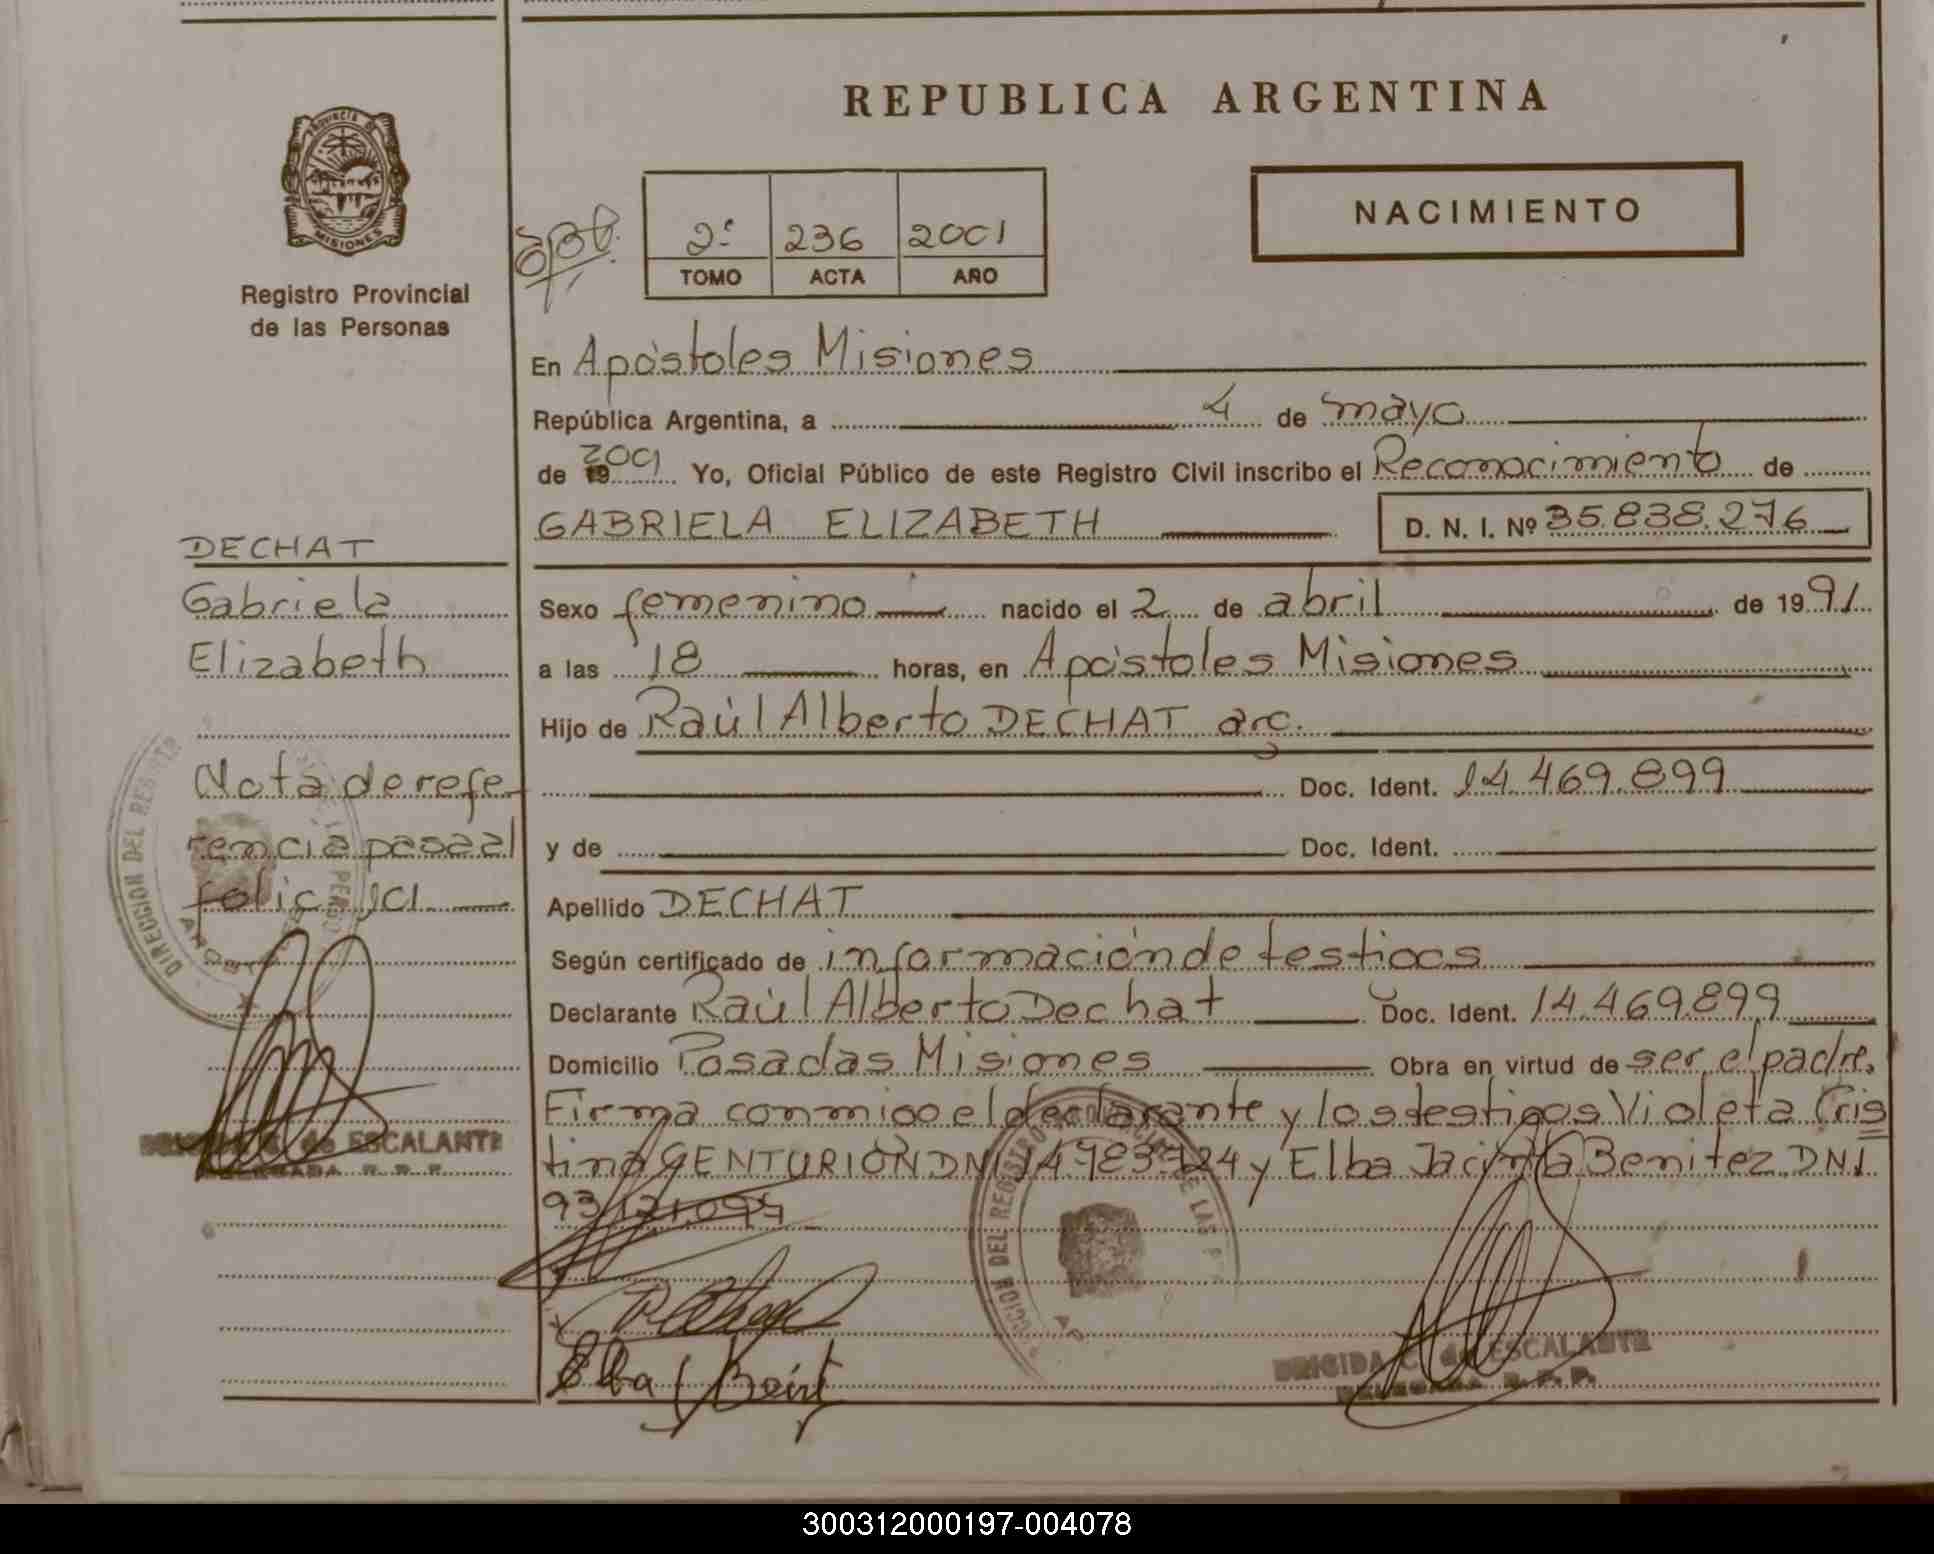 REPUBLICA ARGENTINA
PROVINCIA DE MISIONES
NACIMIENTO
2º 236 2001
TOMO ACTA AÑO
Registro Provincial
de las Personas
En Apóstoles Misiones
República Argentina, a 4 de mayo
de 19 2001 Yo, Oficial Público de este Registro Civil inscribo el Reconocimiento de
GABRIELA ELIZABETH D. N. I. Nº 35.838.276
DECHAT
Gabriela
Elizabeth
Sexo femenino nacido el 2 de abril de 1991
a las 18 horas, en Apóstoles Misiones
Hijo de Raúl Alberto DECHAT arg.
Doc. Ident. 14.469.899
y de Doc. Ident.
Nota de refe
rencia pasa al
folio 101
Apellido DECHAT
Según certificado de información de testigos
Declarante Raúl Alberto Dechat Doc. Ident. 14.469.899
Domicilio Posadas Misiones Obra en virtud de ser el padre.
Firma conmigo el declarante y los testigos Violeta Cris
tina CENTURION DNI y Elba Jacinta Benitez DNI
93.171.094
DIRECCION DEL REGISTRO
BRIGIDA C. de ESCALANTE
DELEGADA R. P. P.
DIRECCION DEL REGISTRO PROVINCIAL DE LAS P
Elba Benit
BRIGIDA C. de ESCALANTE
DELEGADA R. P. P.
300312000197-004078